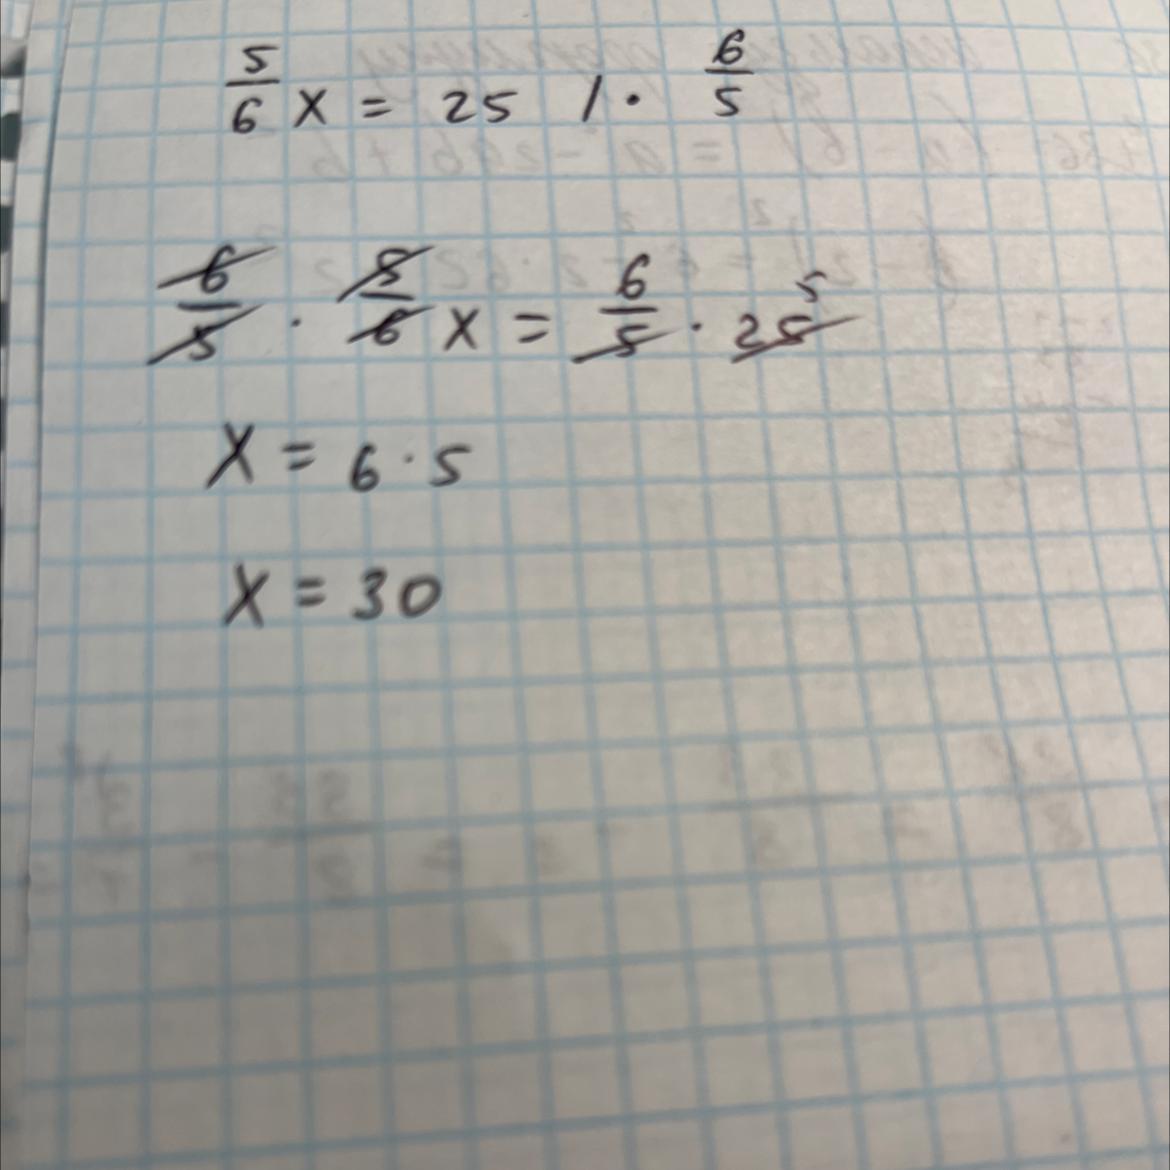 5/6 x = 25 / · 6/5
6/5 · 5/6 x = 6/5 · 25 5
x = 6 · 5
x = 30